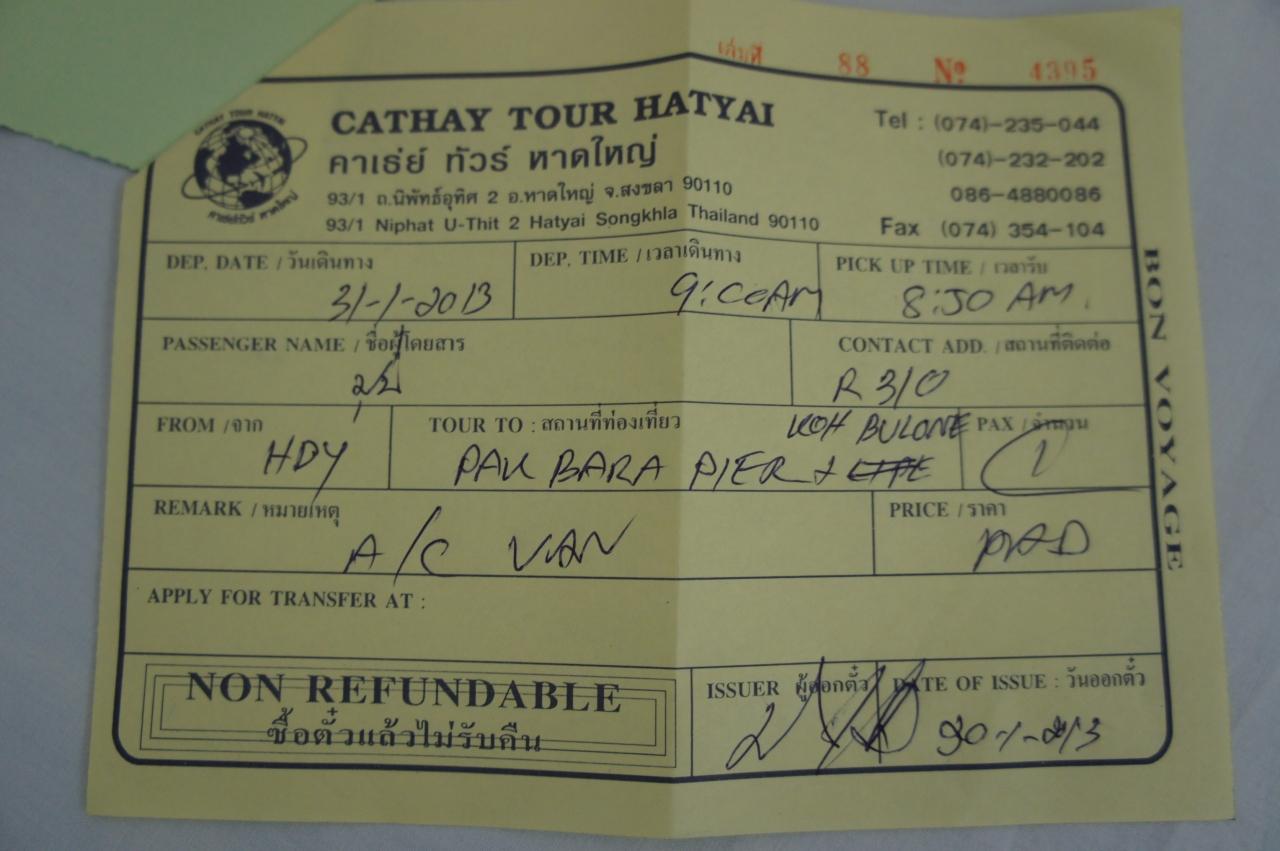 เล่มที่ 88 № 4395
CATHAY TOUR HATYAI
CATHAY TOUR HATYAI
คาเธ่ย์ ทัวร์ หาดใหญ่
คาเธ่ย์ ทัวร์ หาดใหญ่
93/1 ถ.นิพัทธ์อุทิศ 2 อ.หาดใหญ่ จ.สงขลา 90110
93/1 Niphat U-Thit 2 Hatyai Songkhla Thailand 90110
Tel : (074)-235-044
(074)-232-202
086-4880086
Fax (074) 354-104
DEP. DATE / วันเดินทาง
31-1-2013
DEP. TIME / เวลาเดินทาง
9:00AM
PICK UP TIME / เวลารับ
8:30 AM.
PASSENGER NAME / ชื่อผู้โดยสาร
CONTACT ADD. / สถานที่ติดต่อ
R 310
FROM / จาก
HDY
TOUR TO : สถานที่ท่องเที่ยว
KOH BULONE
PAK BARA PIER +
PAX / จำนวน
1
REMARK / หมายเหตุ
A/C VAN
PRICE / ราคา
PAID
APPLY FOR TRANSFER AT :
NON REFUNDABLE
ซื้อตั๋วแล้วไม่รับคืน
ISSUER ผู้ออกตั๋ว
DATE OF ISSUE : วันออกตั๋ว
30-1-2013
BON VOYAGE